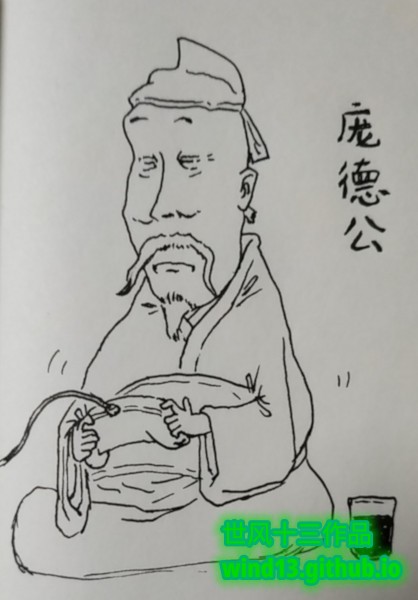 庞德公
世风十三作品
wind13.github.io